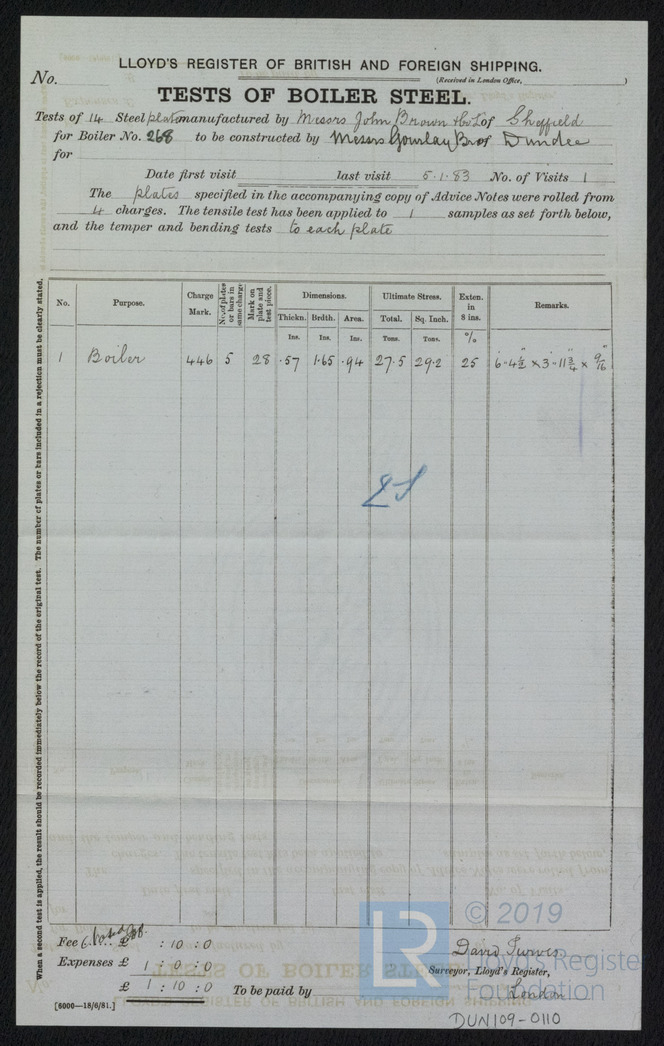 LLOYD'S REGISTER OF BRITISH AND FOREIGN SHIPPING.
No. (Received in London Office, )
TESTS OF BOILER STEEL.
Tests of 14 Steel plates manufactured by Messrs John Brown & Co Ld of Sheffield
for Boiler No. 268 to be constructed by Messrs Gourlay Bros of Dundee
for
Date first visit last visit 5.1.83 No. of Visits 1
The plates specified in the accompanying copy of Advice Notes were rolled from
4 charges. The tensile test has been applied to 1 samples as set forth below,
and the temper and bending tests to each plate
When a second test is applied, the result should be recorded immediately below the record of the original test. The number of plates or bars included in a rejection must be clearly stated.
No. Purpose. Charge Mark. No. of plates or bars in same charge Mark on plate and test piece. Dimensions. Ultimate Stress. Exten. in 8 ins. Remarks.
Thickn. Brdth. Area. Total. Sq. Inch.
Ins. Ins. Ins. Tons. Tons. %
1 Boiler 446 5 28 .57 1.65 .94 27.5 29.2 25 6'-4½" x 3'-11¾" x 9/16"
Fee £ : 10 : 0
Expenses £ 1 : 0 : 0
£ 1 : 10 : 0 To be paid by
David
Surveyor, Lloyd's Register,
London
[6000—18/6/81.]
DUN109-0110
LR © 2019
Lloyd's Register
Foundation